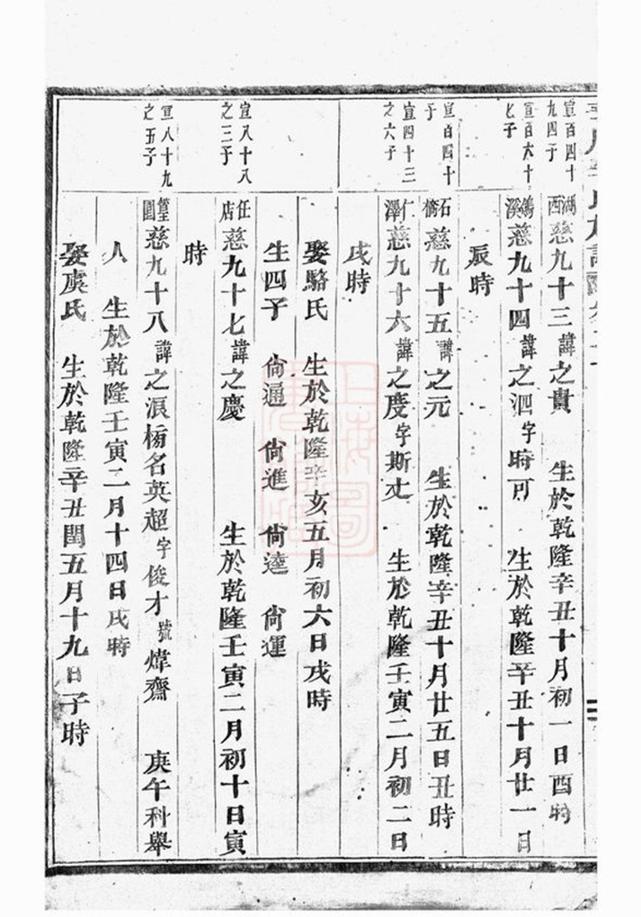 宣百四十九四子
湖西慈九十三諱之貴 生於乾隆辛丑十月初一日酉時
宣百六十七子
鶴溪慈九十四諱之泗字時可 生於乾隆辛丑十月廿一日
辰時
宣百四十子
石橋慈九十五諱之元 生於乾隆辛丑十月廿五日丑時
宣四十三之六子
仁澤慈九十六諱之度字斯丈 生於乾隆壬寅二月初二日
戌時
娶駱氏 生於乾隆辛亥五月初六日戌時
生四子 尙通 尙進 尙達 尙運
宣八十八之三子
任店慈九十七諱之慶 生於乾隆壬寅二月初十日寅
時
宣八十九之五子
篁園慈九十八諱之浪榜名英超字俊才號煒齋 庚午科舉
人 生於乾隆壬寅二月十四日戌時
娶虞氏 生於乾隆辛丑閏五月十九日子時